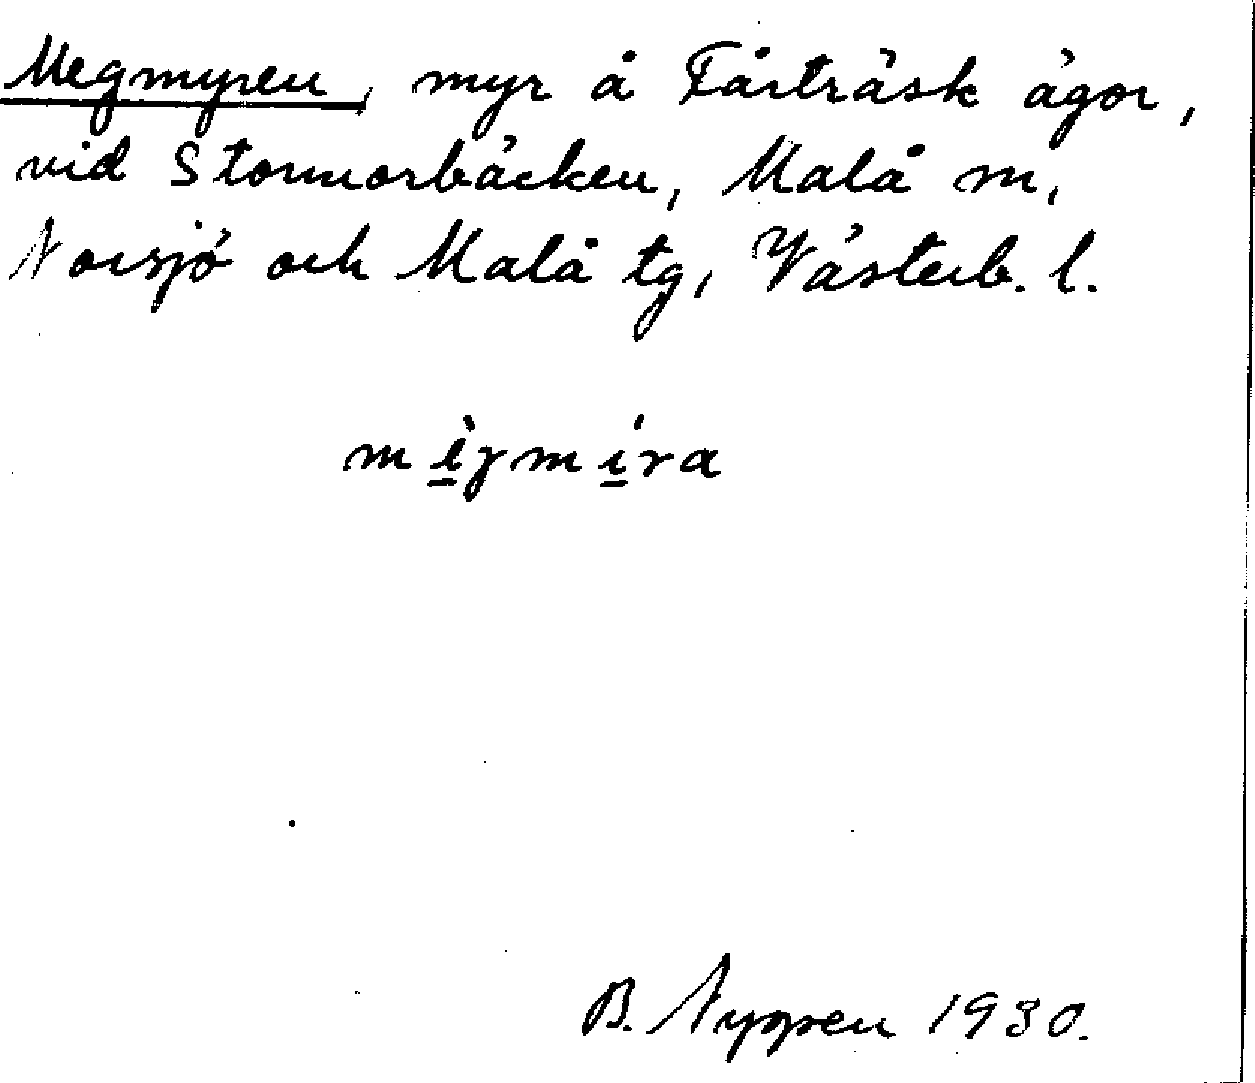 Megmyren, myr å Fårträsk ägor,
vid Stormorbäcken, Malå m,
Norsjö och Malå tg, Västerb. l.
B. Nyppen 1930.